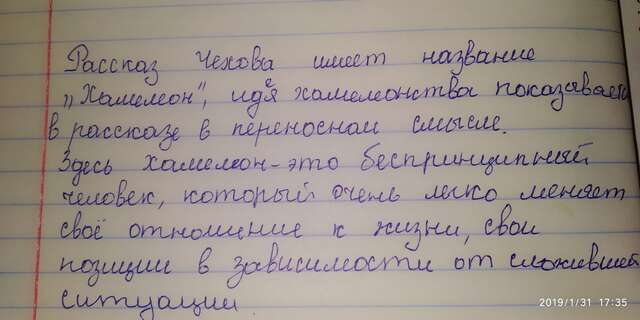 Рассказ Чехова имеет название
„Хамелеон", идея хамелеонства показывает
в рассказе в переносном смысле.
Здесь хамелеон-это беспринципный
человек, который очень легко меняет
своё отношение к жизни, свои
позиции в зависимости от сложившей
ситуации
2019/1/31 17:35